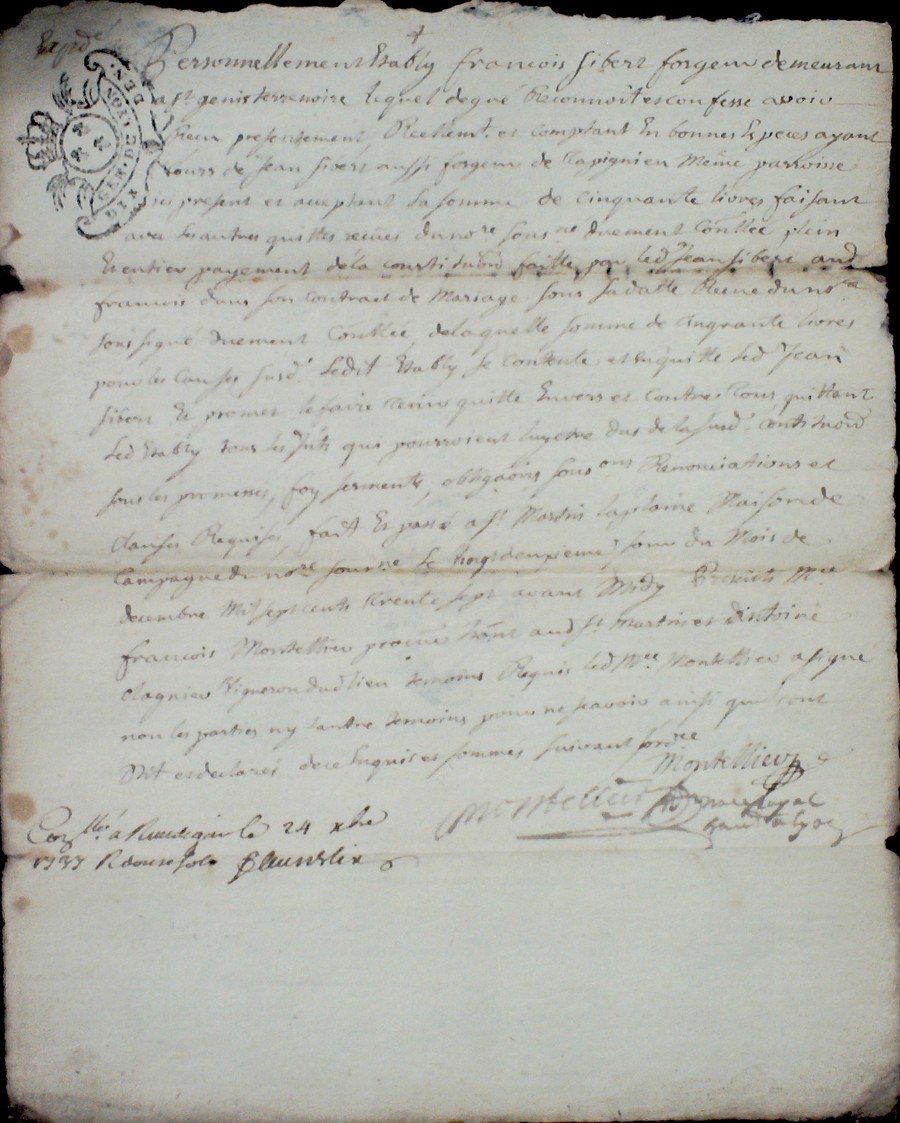 Expdé
Personnellement Estably françois sibert forgeur demeurant
a st genis terrenoire lequel de gré Reconnoit et confesse avoir
presentement, Reellemt. et comptant En bonnes Especes ayant
Cours de Jean sibert aussi forgeur de Même parroisse
icy present et acceptant La somme de cinquante livres faisant
avec les autres quittes reçues du nore sous ne duement Conllée, plein
Et entier payement de la constitution faitte par led. Jean sibert aud
françois dans son Contract de Mariage sous sa datte Receu du nore
soussigné duement Conllée, de laquelle somme de Cinquante livres
pour les Causes susd. Ledit Estably se Contente et En quitte Led Jean
sibert Et promet le faire tenir quitte Envers et Contre tous, quittant
Led Estably tous les qui pourroient luy estre dus de la susd.
sous les promesses, foy serments, obligaons, Renonciations et
clauses Requises, fait Et passé a st Martin laplaine Maison de
Campagne du nore sousne Le deuxieme jour du Mois de
decembre Mil sept cents trente sept avant Midy Presents Mre
françois Montellier aud st Martin et Antoine
Vigneron dud lieu temoins Requis led Mre Montellier a signé
non les parties ny l'autre temoins pour ne scavoir ainsi qu'ils ont
Dit et declarés de ce Enquis et sommés suivant lordce
Montellier
Montellier nore Royal
DIX DEN.
GEN. DE LION
Conllé a le 24 xbre
1737 R douze sols